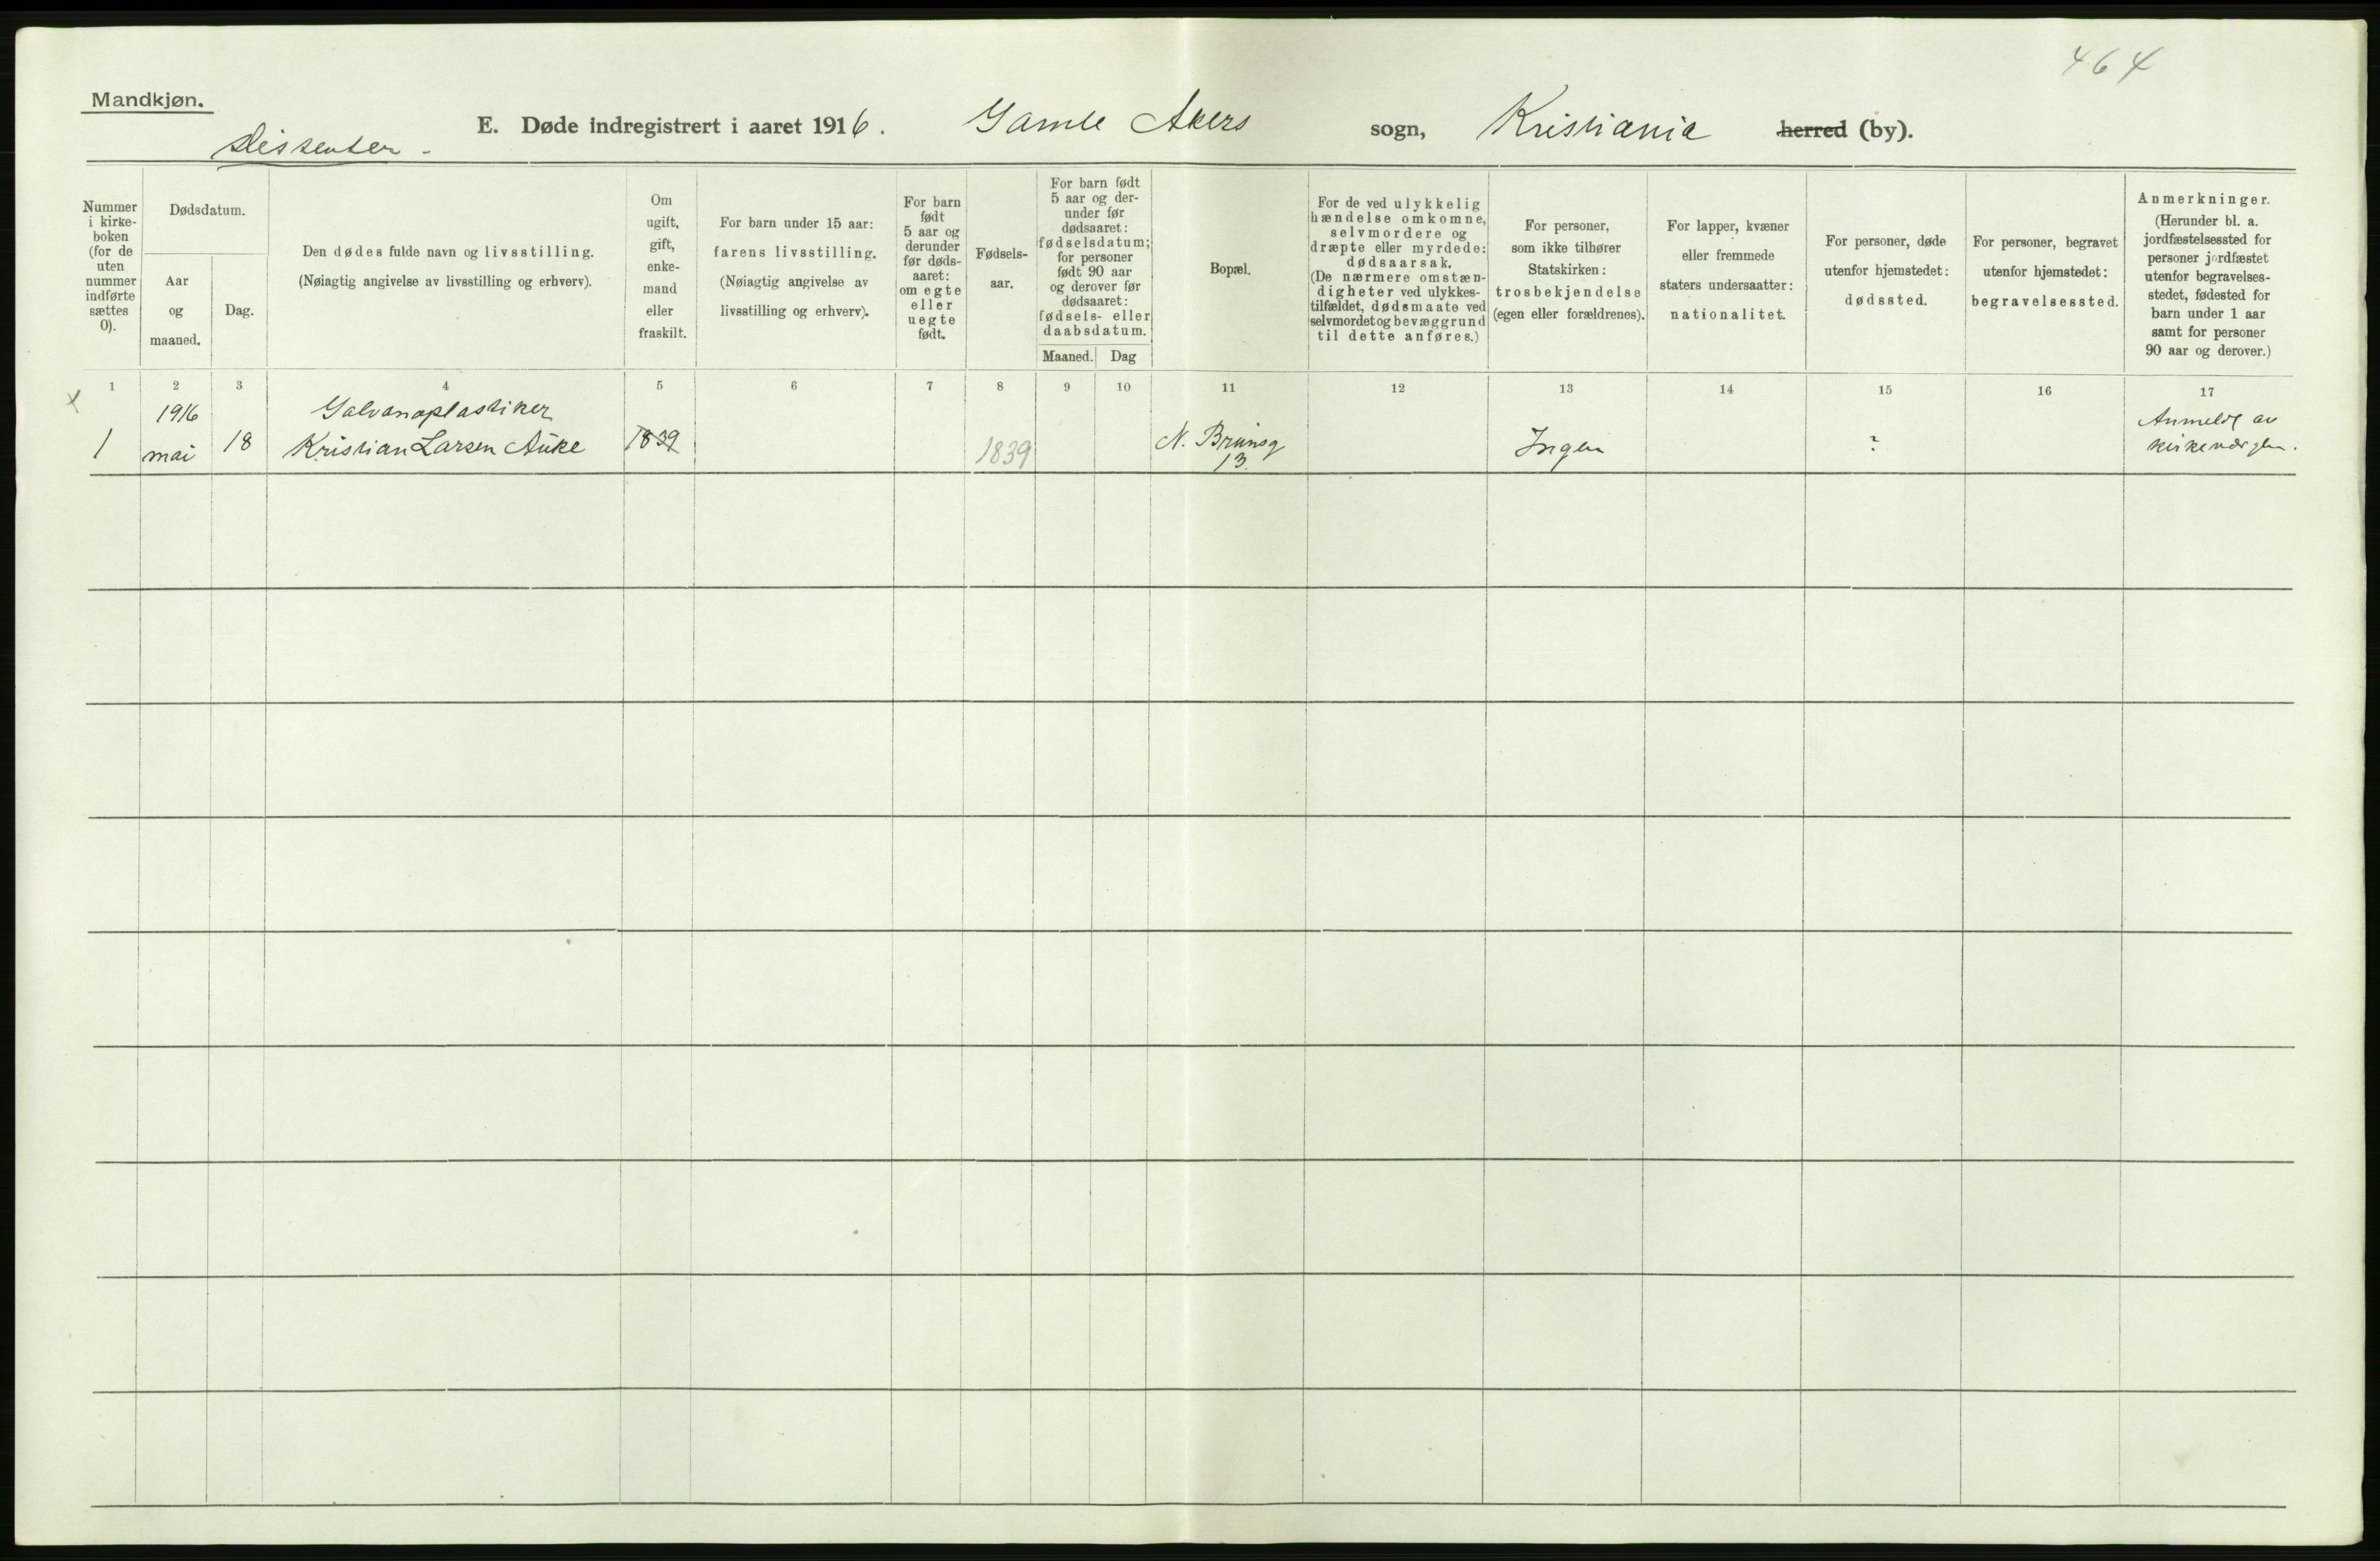 464
Mandkjøn.
Dissenter -
E. Døde indregistrert i aaret 1916. Gamle Akers sogn, Kristiania herred (by).
Nummer
i kirke-
boken
(for de
uten
nummer
indførte
sættes
0).
Dødsdatum.
Aar
og
maaned.
Dag.
Den dødes fulde navn og livsstilling.
(Nøiagtig angivelse av livsstilling og erhverv).
Om
ugift,
gift,
enke-
mand
eller
fraskilt.
For barn under 15 aar:
farens livsstilling.
(Nøiagtig angivelse av
livsstilling og erhverv).
For barn
født
5 aar og
derunder
før døds-
aaret:
om egte
eller
uegte
født.
Fødsels-
aar.
For barn født
5 aar og der-
under før
dødsaaret:
fødselsdatum;
for personer
født 90 aar
og derover før
dødsaaret:
fødsels- eller
daabsdatum.
Maaned. Dag
Bopæl.
For de ved ulykkelig
hændelse omkomne,
selvmordere og
dræpte eller myrdede:
dødsaarsak.
(De nærmere omstæn-
digheter ved ulykkes-
tilfældet, dødsmaate ved
selvmordet og bevæggrund
til dette anføres.)
For personer,
som ikke tilhører
Statskirken:
trosbekjendelse
(egen eller forældrenes).
For lapper, kvæner
eller fremmede
staters undersaatter:
nationalitet.
For personer, døde
utenfor hjemstedet:
dødssted.
For personer, begravet
utenfor hjemstedet:
begravelsessted.
Anmerkninger.
(Herunder bl. a.
jordfæstelsessted for
personer jordfæstet
utenfor begravelses-
stedet, fødested for
barn under 1 aar
samt for personer
90 aar og derover.)
1 2 3 4 5 6 7 8 9 10 11 12 13 14 15 16 17
x 1916 Galvanoplastiker Anmeldt av
1 mai 18 Kristian Larsen Auke 1839 1839 N. Brunsg Ingen ? kirkevergen.
13.